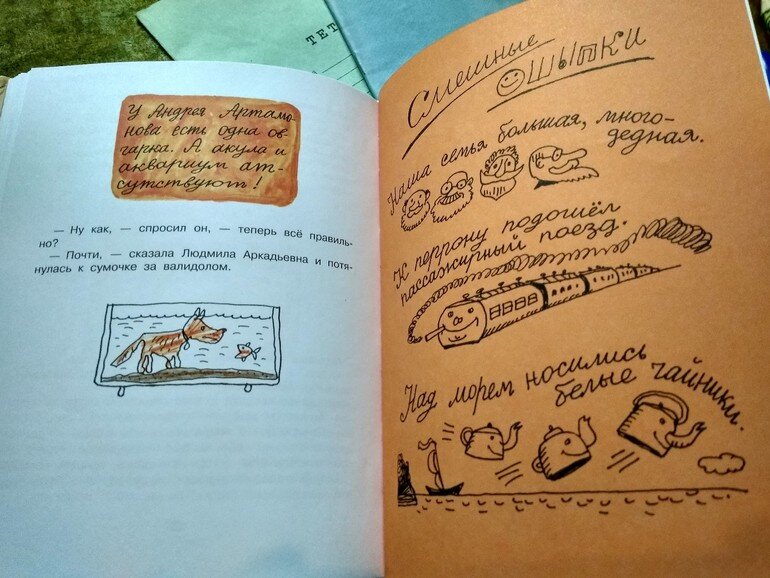 ТЕТ
У Андрея Артамо-
нова есть одна ов
чарка. А акула и
аквариум от-
сутствуют!
— Ну как, — спросил он, — теперь всё правиль-
но?
— Почти, — сказала Людмила Аркадьевна и потя-
нулась к сумочке за валидолом.
Смешные
ошыпки
Наша семья большая, много-
дедная.
К перрону подошёл
пассажырный поезд.
Над морем носились
белые чайники.